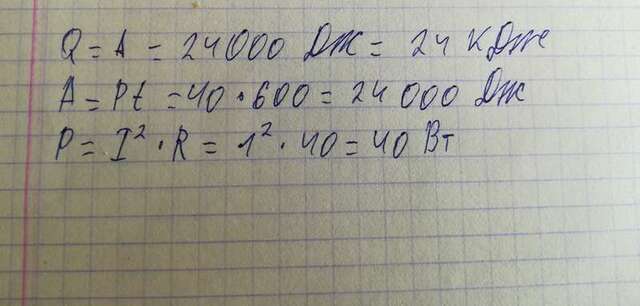 Q = A = 24000 Дж = 24 кДж
A = Pt = 40 · 600 = 24 000 Дж
P = I² · R = 1² · 40 = 40 Вт